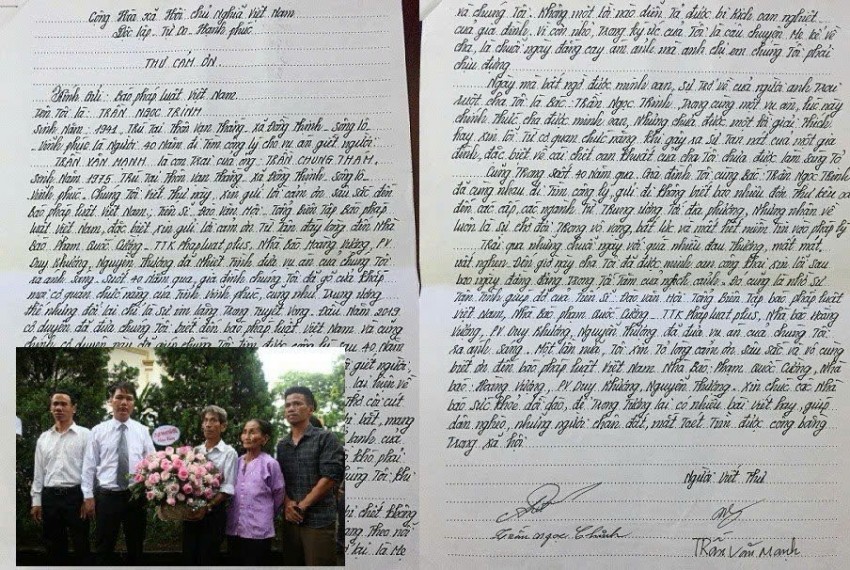 Cộng Hòa xã Hội chủ Nghĩa Việt Nam
Độc lập - Tự Do - Hạnh phúc
THƯ CẢM ƠN
Kính Gửi: Báo pháp luật Việt Nam
Tên Tôi là: TRẦN NGỌC TRINH
Sinh Năm: 1941 Trú Tại Thôn Vạn Thắng - Xã Đồng Thịnh - Sông Lô
Vĩnh phúc là Người 40 Năm đi Tìm công lý cho vụ án giết người
TRẦN VĂN MẠNH là con Trai của ông: TRẦN CHUNG THÁM,
Sinh Năm 1975 Trú Tại Thôn Vạn Thắng - xã Đồng Thịnh - Sông Lô
Vĩnh phúc - Chúng Tôi viết Thư này, xin gửi lời cảm ơn sâu sắc đến
Báo pháp luật Việt Nam; Tiến Sĩ - Đào Văn Hội - Tổng Biên Tập Báo pháp
luật Việt Nam, đặc biệt xin gửi lời cảm ơn Từ Tâm đáy lòng đến Nhà
Báo Phạm Quốc Cường - TTK Phapluat plus, Nhà Báo Hoàng Vường, PV
Duy Khương, Nguyễn Thưởng đã Nhiệt Tình đưa vụ án của chúng Tôi
ra ánh sáng. Suốt 40 năm qua, gia đình chúng Tôi đã gõ cửa khắp
mọi cơ quan chức năng của Tỉnh Vĩnh phúc, cũng như Trung ương
Thế nhưng đổi lại chỉ là sự im lặng Trong Tuyệt Vọng. Đầu Năm 2019
có duyên đã đưa chúng Tôi biết đến báo pháp luật Việt Nam và cũng
sau 40 Năm
giết người,
lại Tìm về
bị bắt, mang
của
khó phải
chúng Tôi khi
bị chết không
Theo nỗi
lại là Mẹ
và chúng Tôi. Không một lời nào diễn Tả được bi kịch oan nghiệt
của gia đình. Vì còn nhỏ, Trong ký ức của Tôi là câu chuyện Mẹ kể về
cha, là chuỗi ngày đắng cay ám ảnh mà anh chị em chúng Tôi phải
chịu đựng
Ngày mà bất ngờ được minh oan, sự Trở về của người anh Trai
ruột cha Tôi là Bác: TRẦN NGỌC TRINH, Trong cùng một vụ án, lúc này
chính Thức cha được minh oan, Nhưng chưa được một lời giải Thích
hay xin lỗi Từ cơ quan chức năng khi gây ra sự Tan nát của một gia
đình, đặc biệt về cái chết oan khuất của cha Tôi chưa được làm sáng Tỏ
Cũng Trong suốt 40 năm qua. Gia đình Tôi cùng Bác: Trần Ngọc Trinh
đã cùng nhau đi Tìm công lý, gửi đi không biết bao nhiêu đơn Thư kêu oan
đến các cấp, các ngành Từ Trung ương Tới địa phương, Nhưng nhận về
luôn là sự chờ đợi Trong vô vọng, bất lực và mất hết niềm Tin vào pháp lý
Trải qua những chuỗi ngày với quá nhiều đau Thương, mất mát,
vất nghìn. Đến giờ này cha Tôi đã được minh oan công khai xin lỗi sau
bao ngày đằng đẵng Trong Tột Tâm của nghịch cảnh. Đó cũng là nhờ sự
Tận Tình giúp đỡ của Tiến Sĩ: Đào Văn Hội Tổng Biên Tập báo pháp luật
Việt Nam, Nhà Báo phạm Quốc Cường - TTK Phapluat plus, Nhà báo Hoàng
Vường, PV Duy Khương, Nguyễn Thưởng đã đưa vụ án của chúng Tôi
ra ánh sáng. Một lần nữa, Tôi xin Tỏ lòng cảm ơn sâu sắc và vô cùng
biết ơn đến báo pháp luật Việt Nam. Nhà Báo: Phạm Quốc Cường, Nhà
báo: Hoàng Vường, PV Duy Khương, Nguyễn Thưởng. Xin chúc các Nhà
báo sức khỏe dồi dào, để Trong Tương lai có nhiều bài viết hay, giúp
dân nghèo, những người chân đất, mắt Toét Tìm được công bằng
Trong xã hội
Người viết Thư
Trần Văn Mạnh